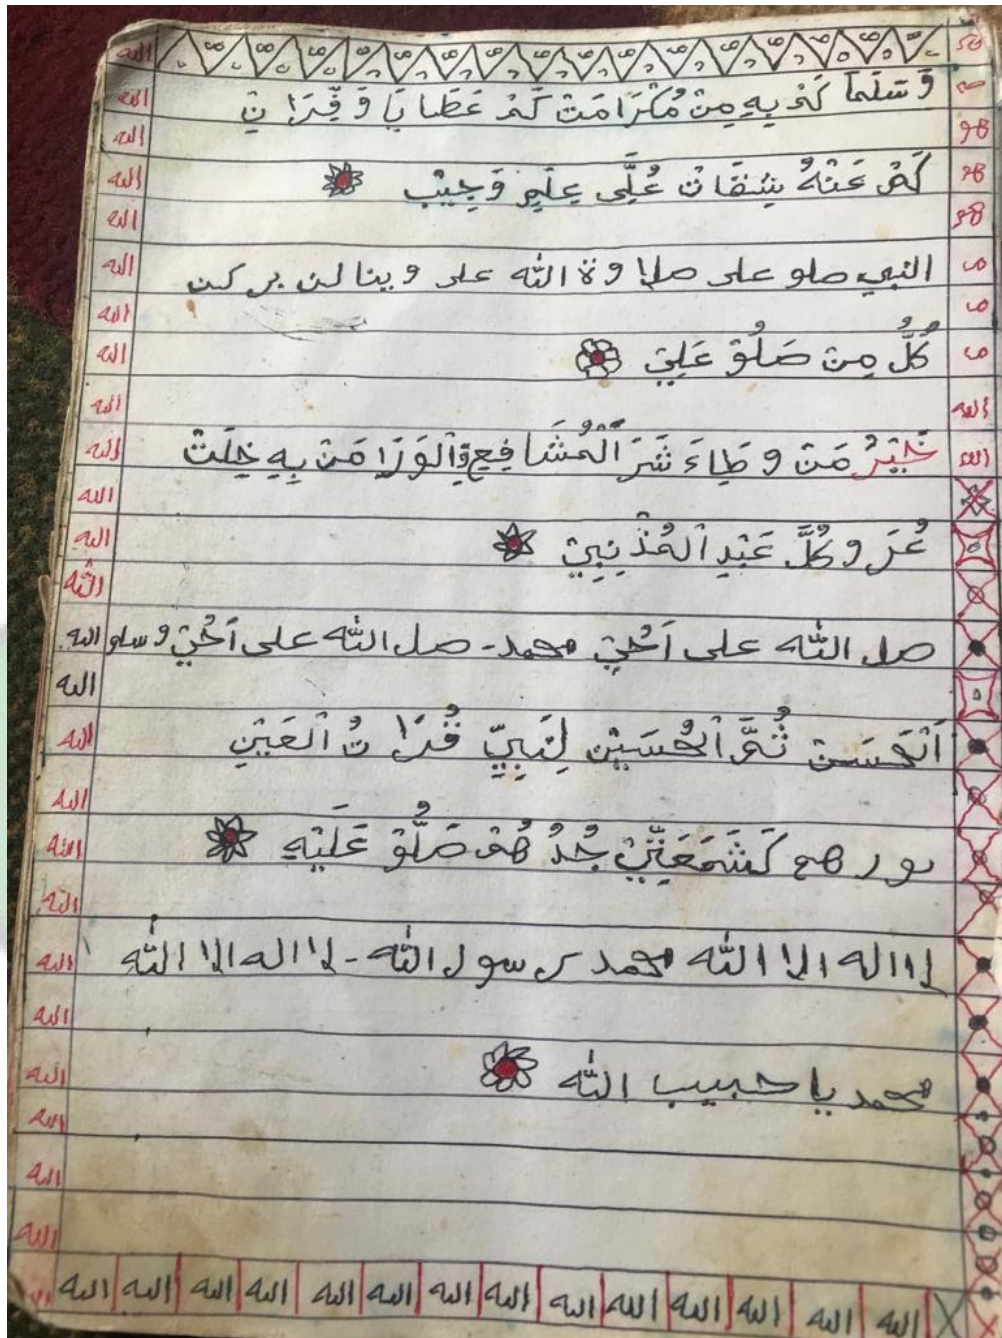 وَسَلَمَا كَمْ بِهِ مِنْ مُكْرَامَتْ كَمْ عَطَايَا وَفِرَانِ
كَمْ عَنْهُ شِفَاتْ عُلَّى عِلْمِ وَجِيْبْ
النبي صلو على صلاوة الله على وينا لن بركن
كُلُّ مِنْ صَلُوْ عَلِيْ
خَيْرُ مَنْ وطِاءَ شَرَ الْمُشَافِعِ فِالْوَرَا مَنْ بِهِ خِلَتْ
عُرَ وكُلَّ عَبْدِ الْمُذْنِبِيْ
صل الله على اَحُيْ محمد - صل الله على اَحُيْ وسلو
اَلْحَسَنْ ثُمَّ الْحُسَيْنِ لِنَبِيِّ قُرَا تُ الْعَيْنِ
نورهم كَشَمَعَيْنِ جُدُ هُمْ صَلُّوْ عَلَيْهِ
لا اله الا الله محمد رسول الله - لا اله الا الله
محمد يا حبيب الله
الله الله الله الله الله الله الله الله الله الله الله الله الله الله